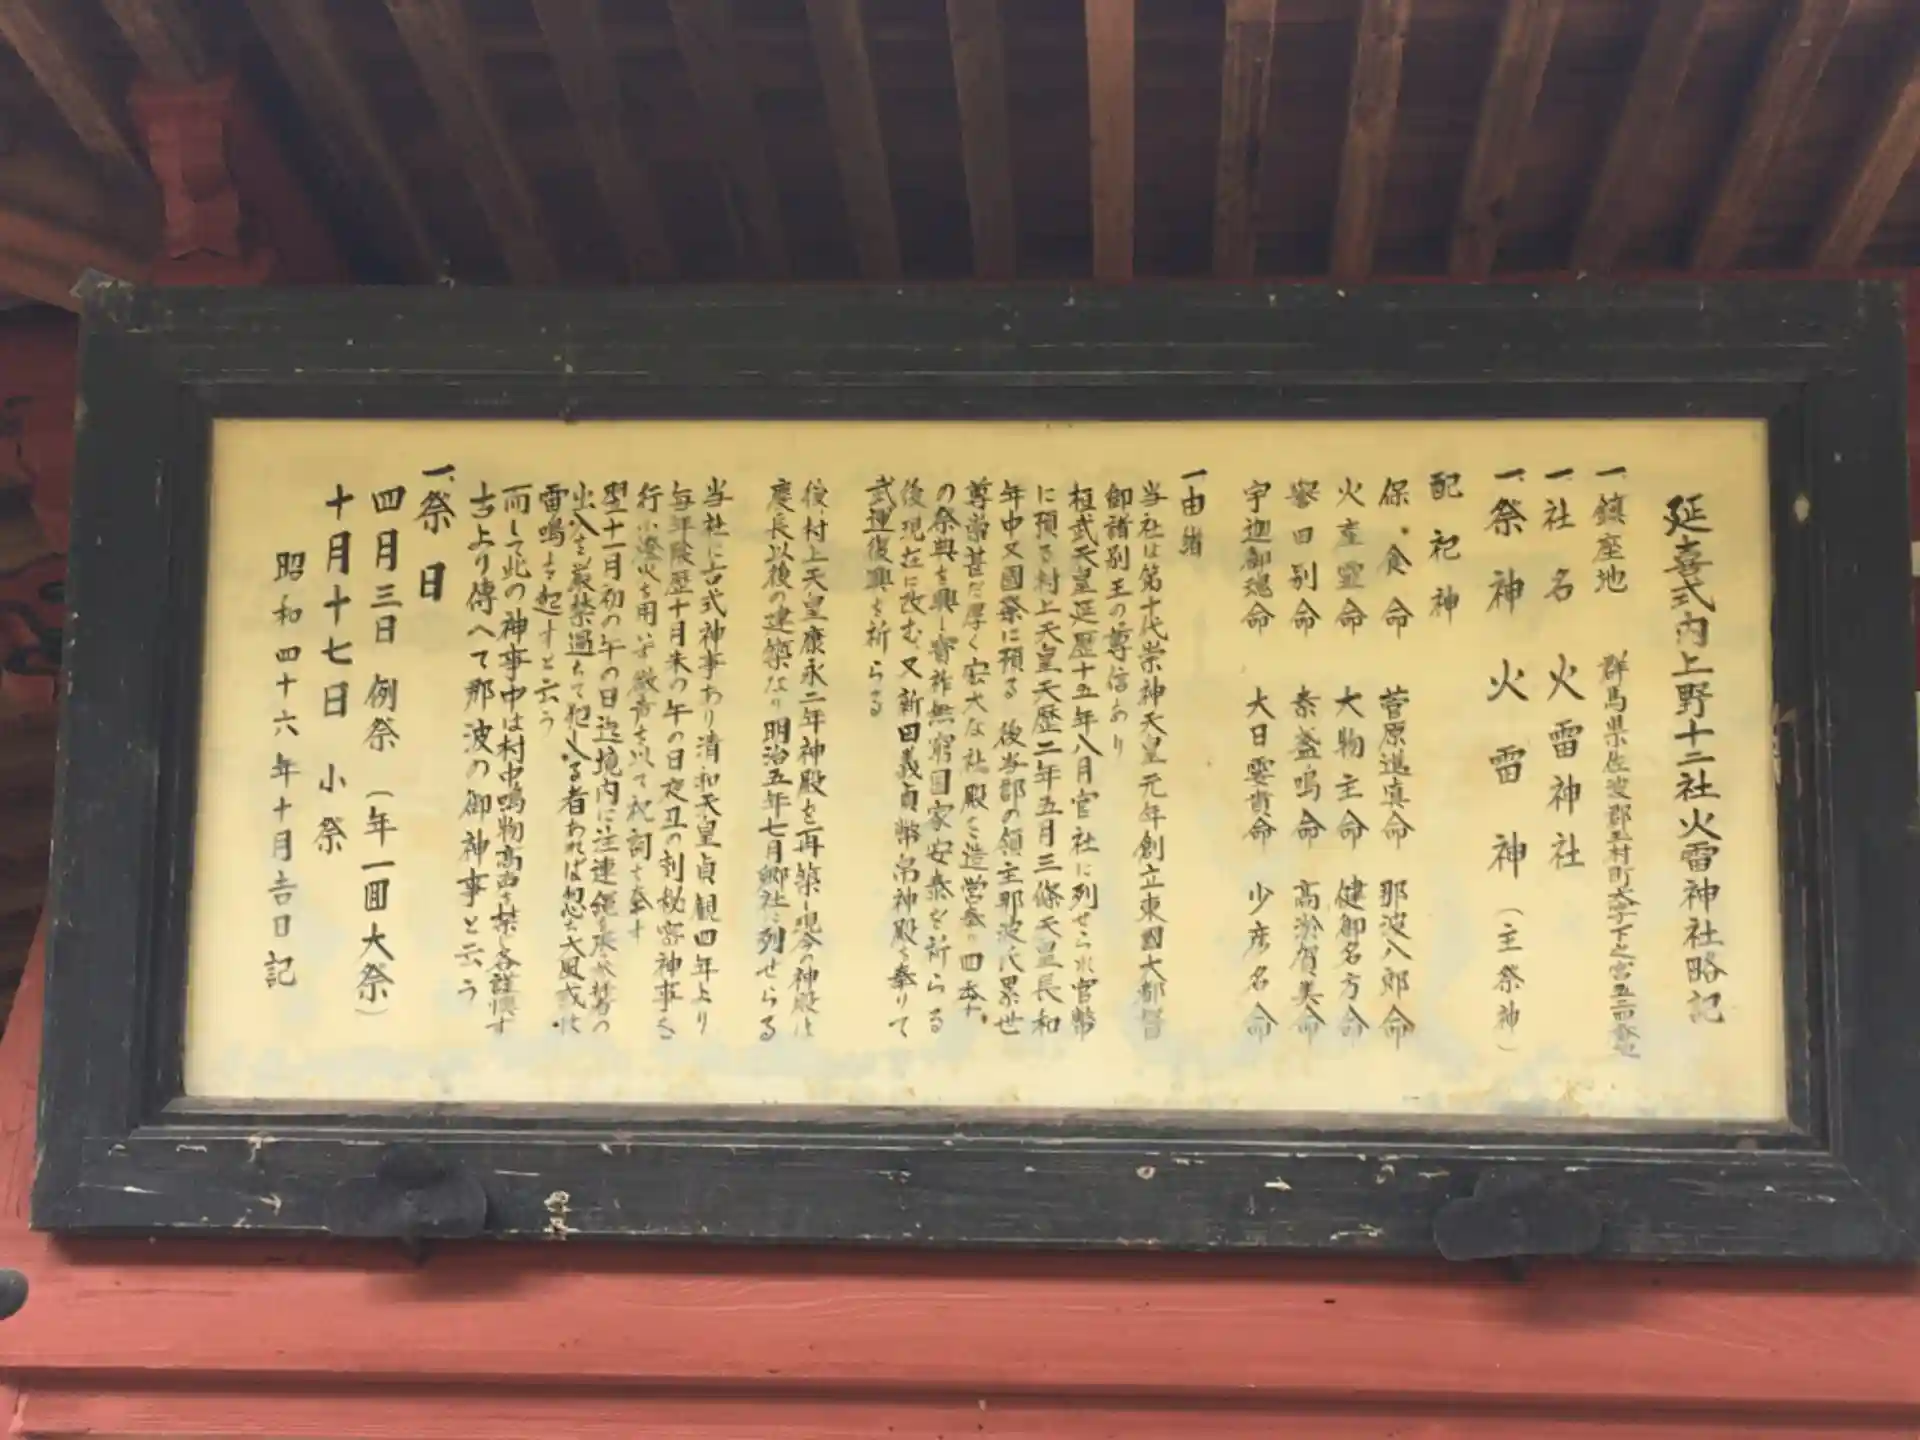 延喜式内上野十二社火雷神社略記
一、鎮座地　群馬県佐波郡玉村町大字下之宮
一、社名　火雷神社
一、祭神　火雷神（主祭神）
配祀神
保食命　菅原道真命　那波八郎命
火産霊命　大物主命　健御名方命
誉田別命　素盞嗚命　高淤賀美命
宇迦御魂命　大日孁貴命　少彦名命
一、由緒
当社は第十代崇神天皇元年創立東國大都督
御諸別王の尊信あり
桓武天皇延歴十五年八月官社に列せられ官幣
に預る村上天皇天歴二年五月三條天皇長和
年中又國祭に預る　後当郡の領主那波氏累世
尊崇甚だ厚く宏大な社殿を造営奉り四季
の祭典を興し寳祚無窮国家安泰を祈らる
後現在に改む又新田義貞幣帛神殿を奉りて
武運復興を祈らる
後村上天皇康永二年神殿を再築し現今の神殿は
慶長以後の建築なり明治五年七月郷社に列せらる
当社に古式神事あり清和天皇貞観四年より
毎年陰歴十月末の午の日夜丑の刻秘密神事を
行小燈火を用いず微音を以て祝詞を奉す
翌十一月初の午の日迄境内に注連縄を張り
出入を厳禁過ちて犯し入る者あれば忽ち大風或は
雷鳴を起すと云う
而して此の神事中は村中鳴物高声を禁じ各謹慎す
古より傳へて那波の御神事と云う
一、祭日
四月三日　例祭（年一回大祭）
十月十七日　小祭
昭和四十六年十月吉日記